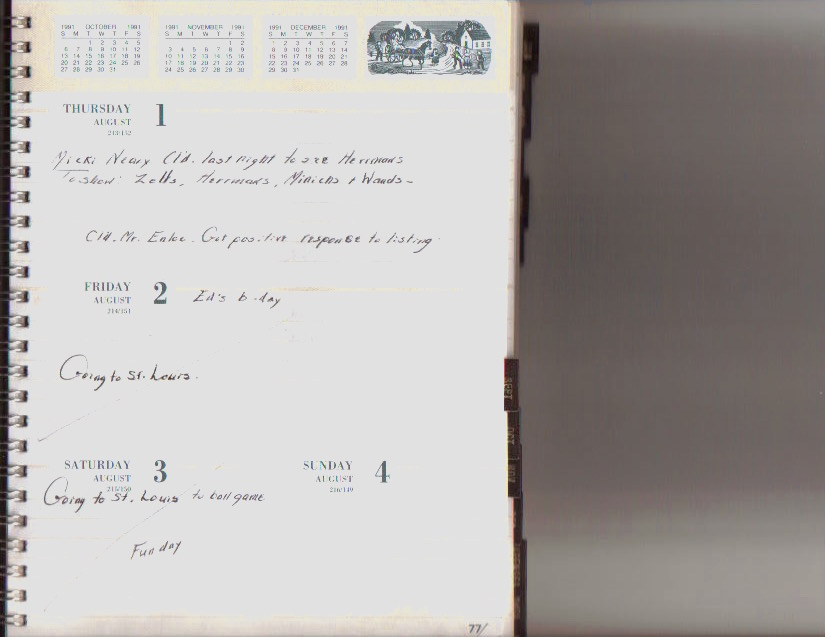 1991 OCTOBER 1991
S M T W T F S
1 2 3 4 5
6 7 8 9 10 11 12
13 14 15 16 17 18 19
20 21 22 23 24 25 26
27 28 29 30 31
1991 NOVEMBER 1991
S M T W T F S
1 2
3 4 5 6 7 8 9
10 11 12 13 14 15 16
17 18 19 20 21 22 23
24 25 26 27 28 29 30
1991 DECEMBER 1991
S M T W T F S
1 2 3 4 5 6 7
8 9 10 11 12 13 14
15 16 17 18 19 20 21
22 23 24 25 26 27 28
29 30 31
THURSDAY 1
AUGUST
213/152
Micki Neary Cld. last night to see Herrmans
To show: Zolls, Herrmans, Minichs + Wands-
Cld. Mr. Enloe. Got positive response to listing.
FRIDAY 2 Ed's b-day
AUGUST
214/151
Going to St. Louis.
SATURDAY 3
AUGUST
215/150
Going to St. Louis to ball game
Fun day
SUNDAY 4
AUGUST
216/149
SEPT
OCT
NOV
77/